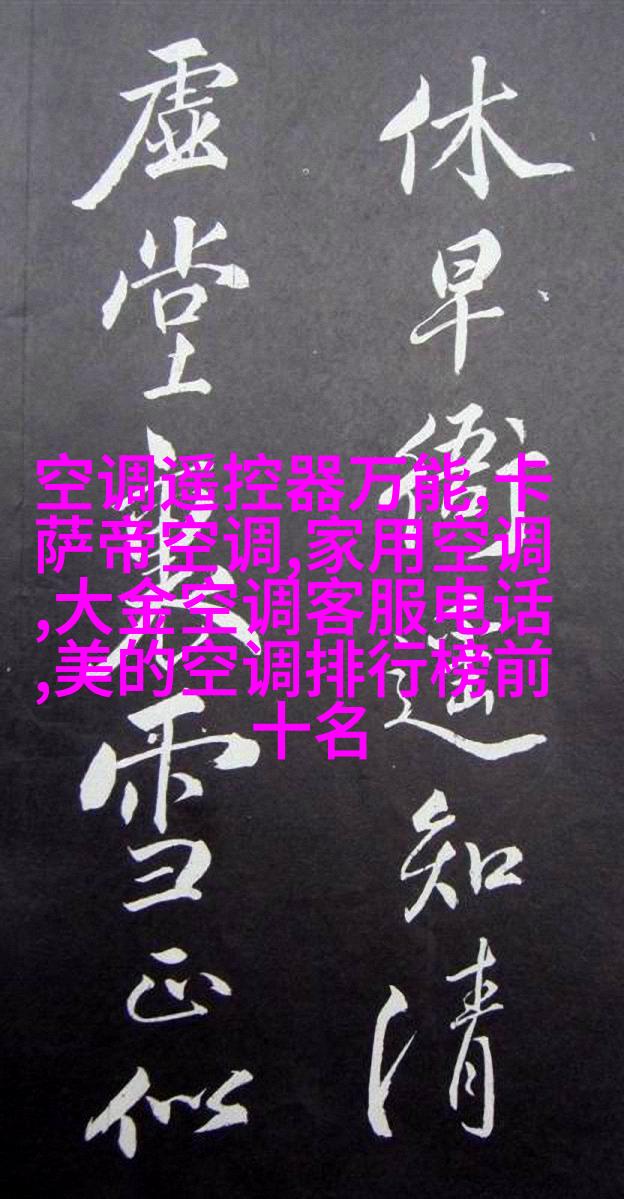 休早衙遥知清
虚堂裏雪正似
空调遥控器万能,卡
萨帝空调,家用空调
,大金空调客服电话
,美的空调排行榜前
十名